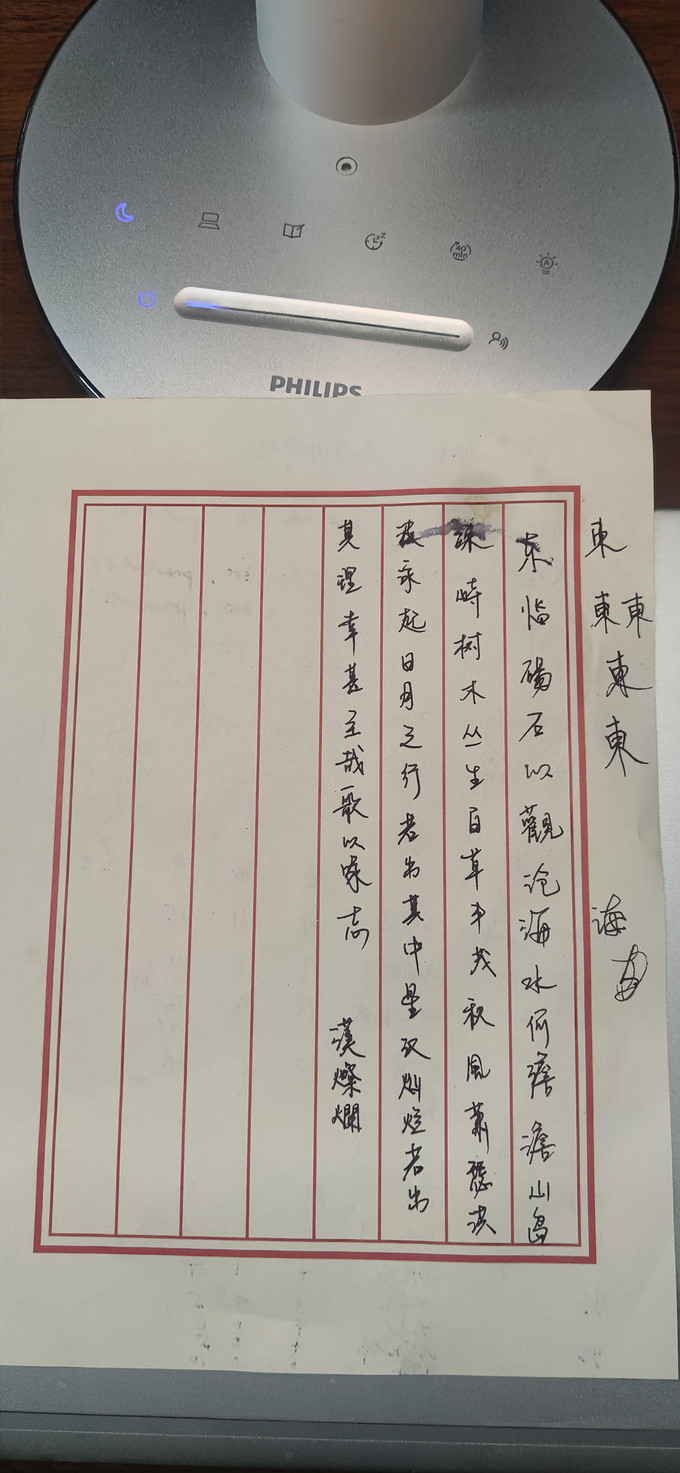 40
min
PHILIPS
東
東東
東
東
海
东临碣石以觀沧海水何澹澹山岛
竦峙树木丛生百草丰茂秋风萧瑟洪
波涌起日月之行若出其中星汉灿烂若出
其里幸甚至哉歌以咏志
漢燦爛